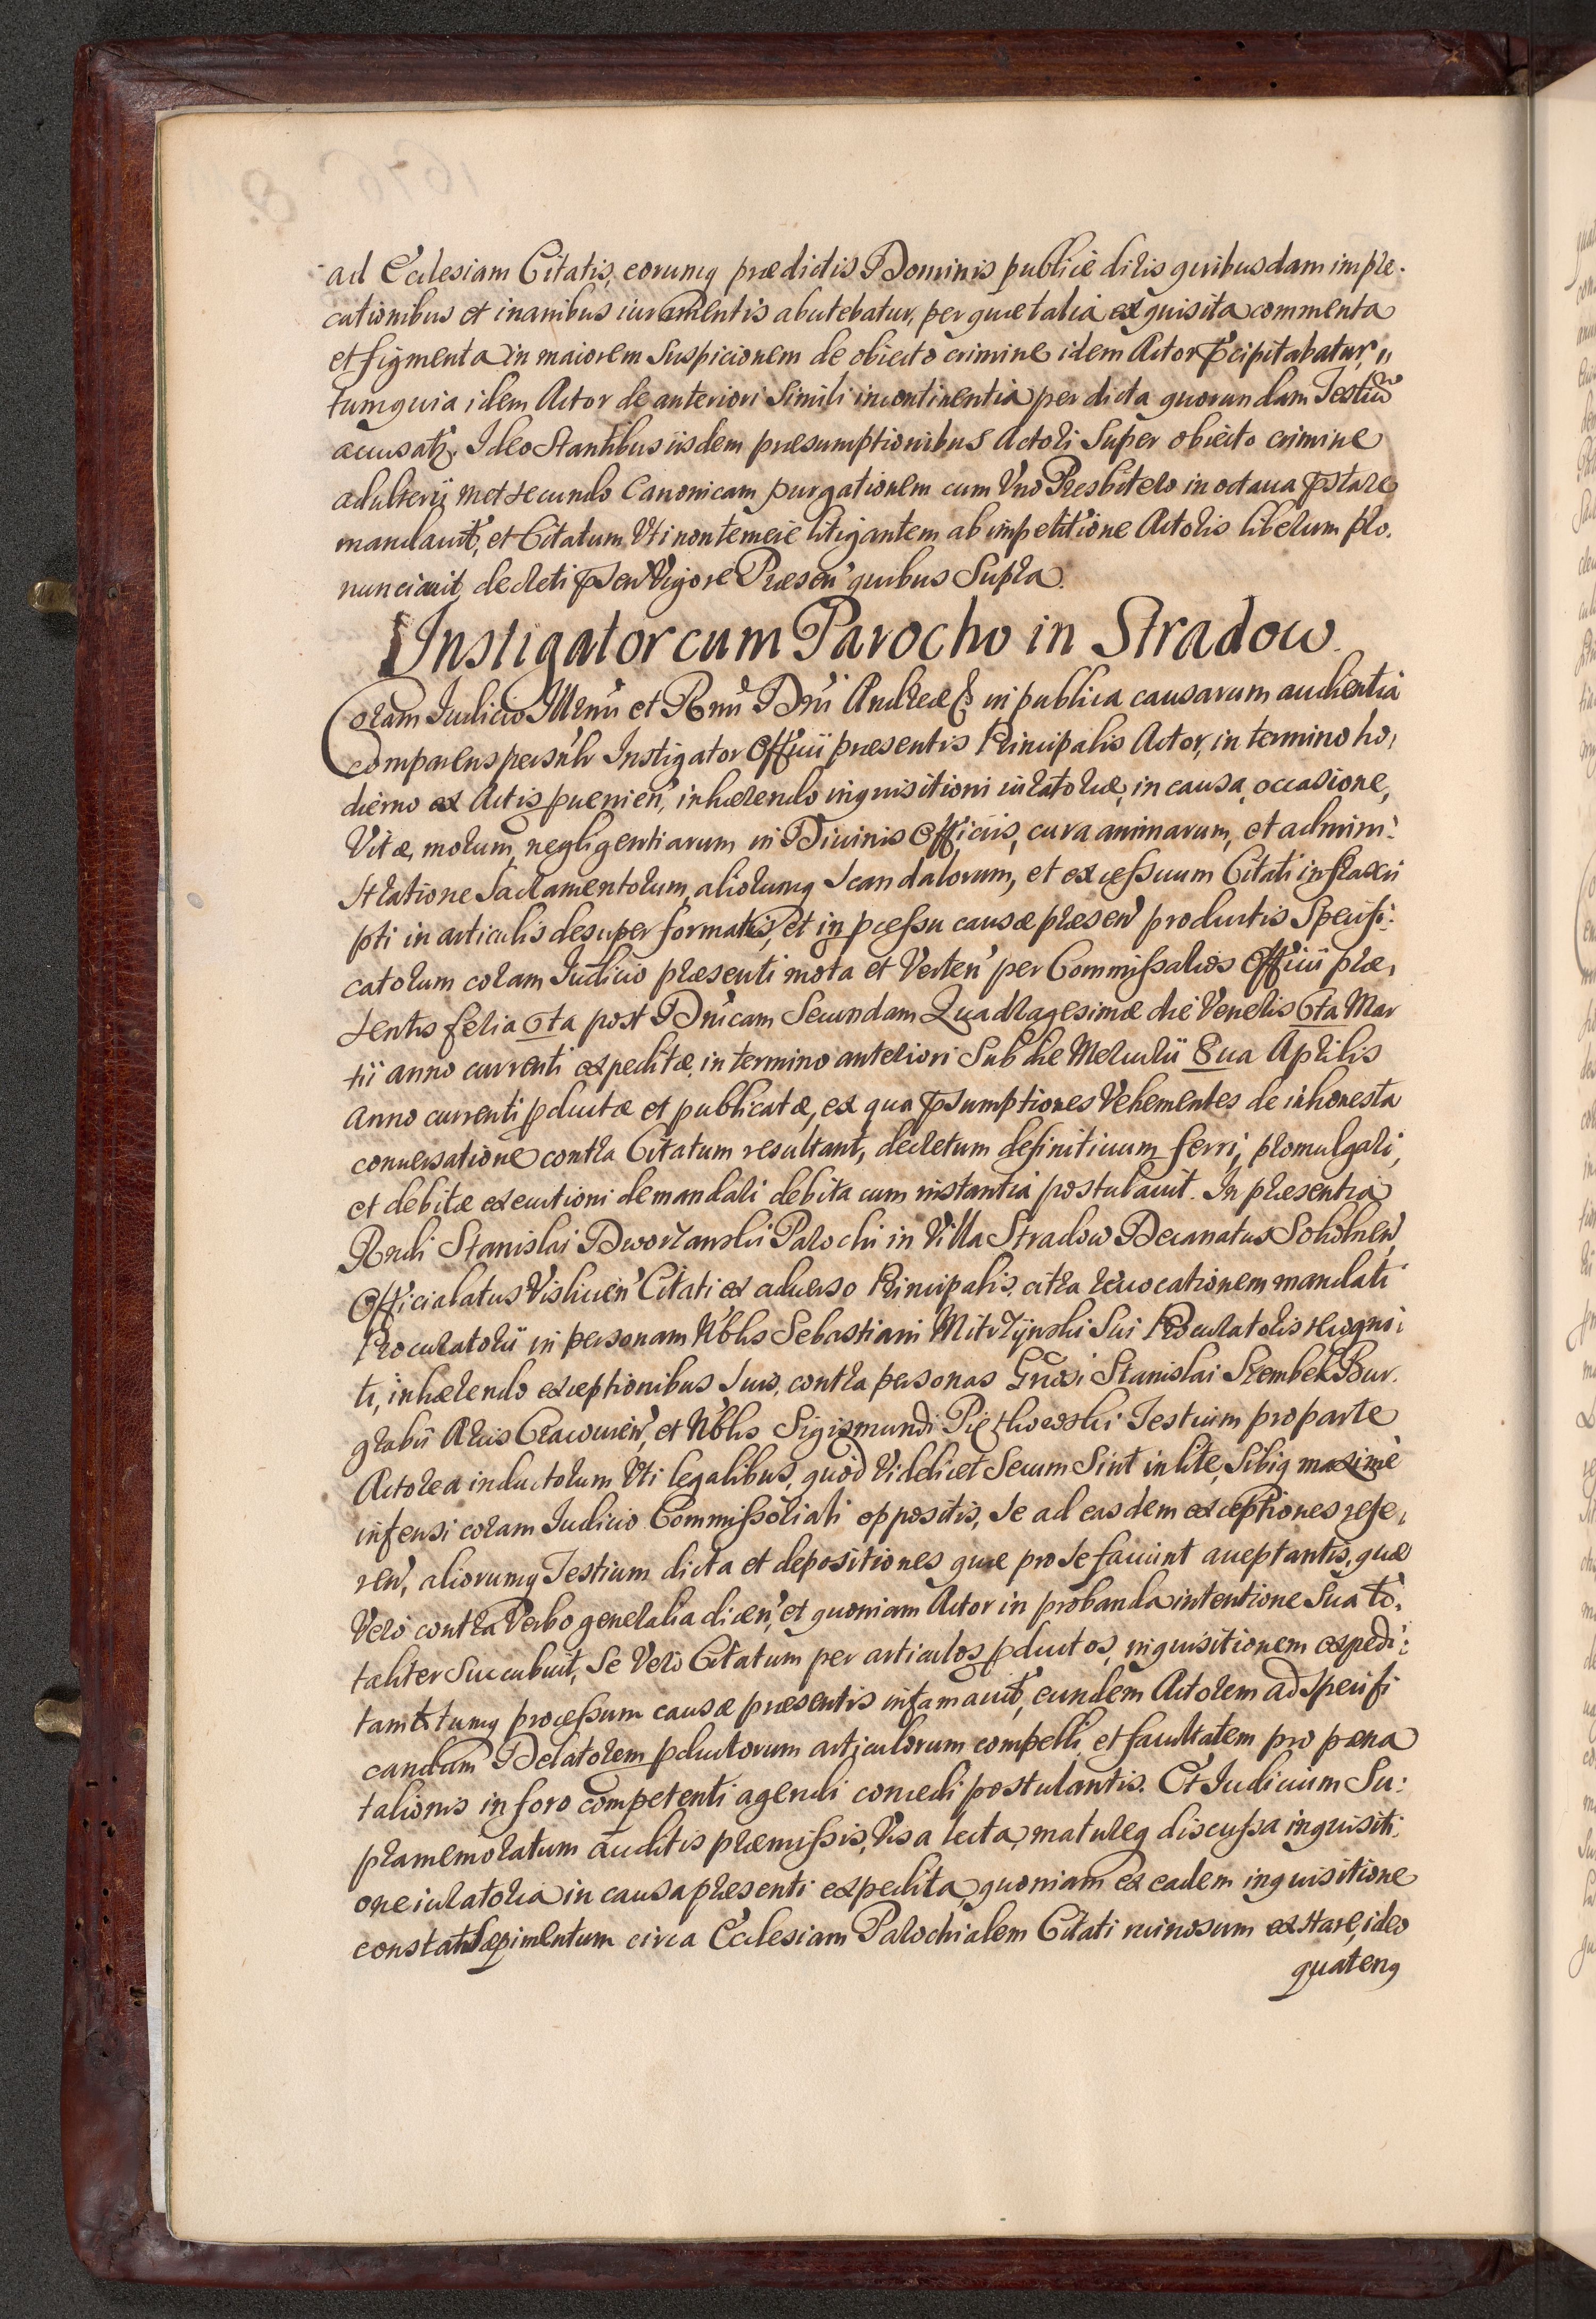 ad Ecclesiam Citatis, eorumq prædictis Dominis publicè diris quibusdam impre.
cationibus et inanibus iuramentis abutebatur, per quæ talia exquisita commenta
et figmenta in maiorem Suspicionem de obiecto crimine idem Actor p̃cipitabatur,,
tum quia idem Actor de anteriori Simili incontinentia per dicta quorundam Testiũ
accusatq. Ideo Stantibus iisdem præsumptionibus Actori Super obiecto crimine
adulterij metsecundo Canonicam purgationem cum Vno Presbitero in octaua p̃stare
mandauit, et Citatum Vti non temerè litigantem ab impetitione Actoris liberum pro,
nunciauit, decreti p̃sen Vigore Præsen' quibus Supra.
Instigator cum Parocho in Stradow.
Coram Iudicio Illrmi et Rnmi Dni Andreæ & in publica causarum audientia
comparens persnlr Instigator Officii præsentis Principalis Actor, in termino ho,
dierno ex Actis pueniẽn, inhærendo inquisitioni iuratoriæ, in causa, occasione,
Vitæ, morum, negligentiarum in Diuinis Officiis, cura animarum, et admini:
stratione Sacramentorum, aliorumq Scandalorum, et excessuum Citati infraxri
pti in articulis desuper formatis, et in pcessu causæ præsen' productis Specifi:
catorum coram Iudicio præsenti mota et Verten' per Commissarios Officii præ,
sentis feria 6ta post Dnicam Secundam Quadragesimæ die Veneris 6ta Mar
tii anno currenti expeditæ, in termino anteriori Sub die Mercurii 8ua Aprilis
anno currenti pductæ et publicatæ, ex qua p̃sumptiones Vehementes de inhonesta
conuersatione contra Citatum resultant, decretum definitiuum ferri, promulgari,
et debitæ executioni demandari debita cum instantia postulauit. In præsentia
Rndi Stanislai Dworzanski Parochi in Villa Stradow Decanatus Sokolnen'
Officialatus Vislicien' Citati ex aduerso Principalis, citra reuocationem mandati
Procuratorii in personam Nblis Sebastiani Mitrzynski Sui Procuratoris recogni:
ti, inhærendo exceptionibus Suis, contra personas Gnosi Stanislai Szembek Bur.
grabii Arcis Cracouien', et Nblis Sigismundi Piętkowski Testium pro parte
Actorea inductorum Vti legalibus, quòd Videlicet Secum Sint in lite, Sibiq maximè
infensi coram Iudicio Commissoriali oppositis, Se ad easdem exceptiones refe,
ren', aliorumq Testium dicta et depositiones quæ pro Se faciunt acceptantis, quæ
Verò contra Verbo generalia dicen', et quoniam Actor in probanda intentione Sua to,
taliter Succubuit, Se Verò Citatum per articulos pductos, inquisitionem expedi:
tam totumq processum causæ præsentis infamauit, eundem Actorem ad Specifi
candum Delatorem pductorum articulorum compelli, et facultatem pro pæna
talionis in foro competenti agendi concedi postulantis. Et Iudicium Su:
pramemoratum auditis præmissis, Visa lecta, matureq discussa inquisiti,
one iuratoria in causa præsenti expedita, quoniam ex eadem inquisitione
constat Sæpimentum circa Ecclesiam Parochialem Citati ruinosum exstare, ideo
quatenq